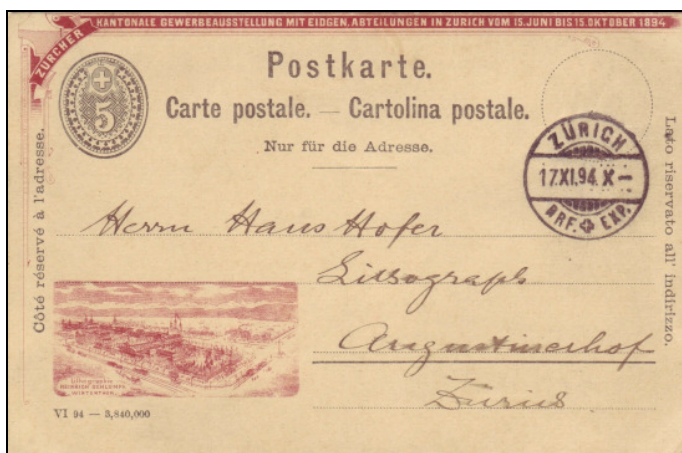 KANTONALE GEWERBEAUSSTELLUNG MIT EIDGEN. ABTEILUNGEN IN ZÜRICH VOM 15. JUNI BIS 15. OKTOBER 1894
ZÜRCHER
Postkarte.
Carte postale. — Cartolina postale.
Nur für die Adresse.
5
ZÜRICH
17.XI.94. X –
BRF. EXP.
Côté réservé à l'adresse.
Lato riservato all' indirizzo.
Herrn Hans Hofer
Lithograph
Augustinerhof
Zürich
Lithographie
HEINRICH SCHLUMPF
WINTERTHUR
VI 94 — 3,840,000